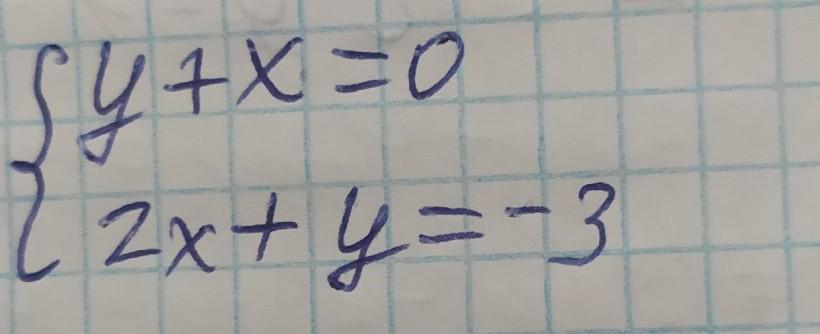 y+x=0
2x+y=-3